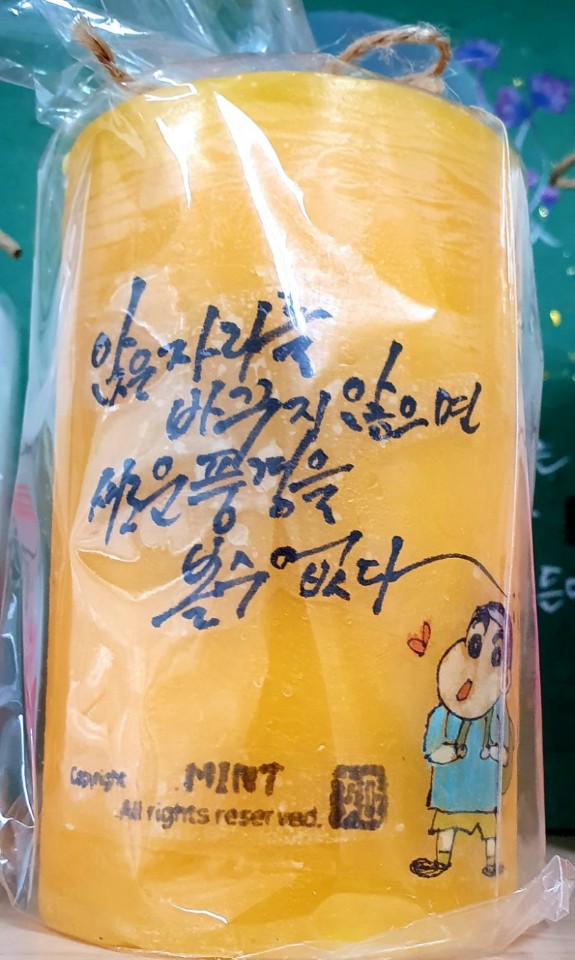 앉은자리를
바꾸지 않으면
새로운 풍경을
볼수 없다
Copyright MINT
All rights reserved.